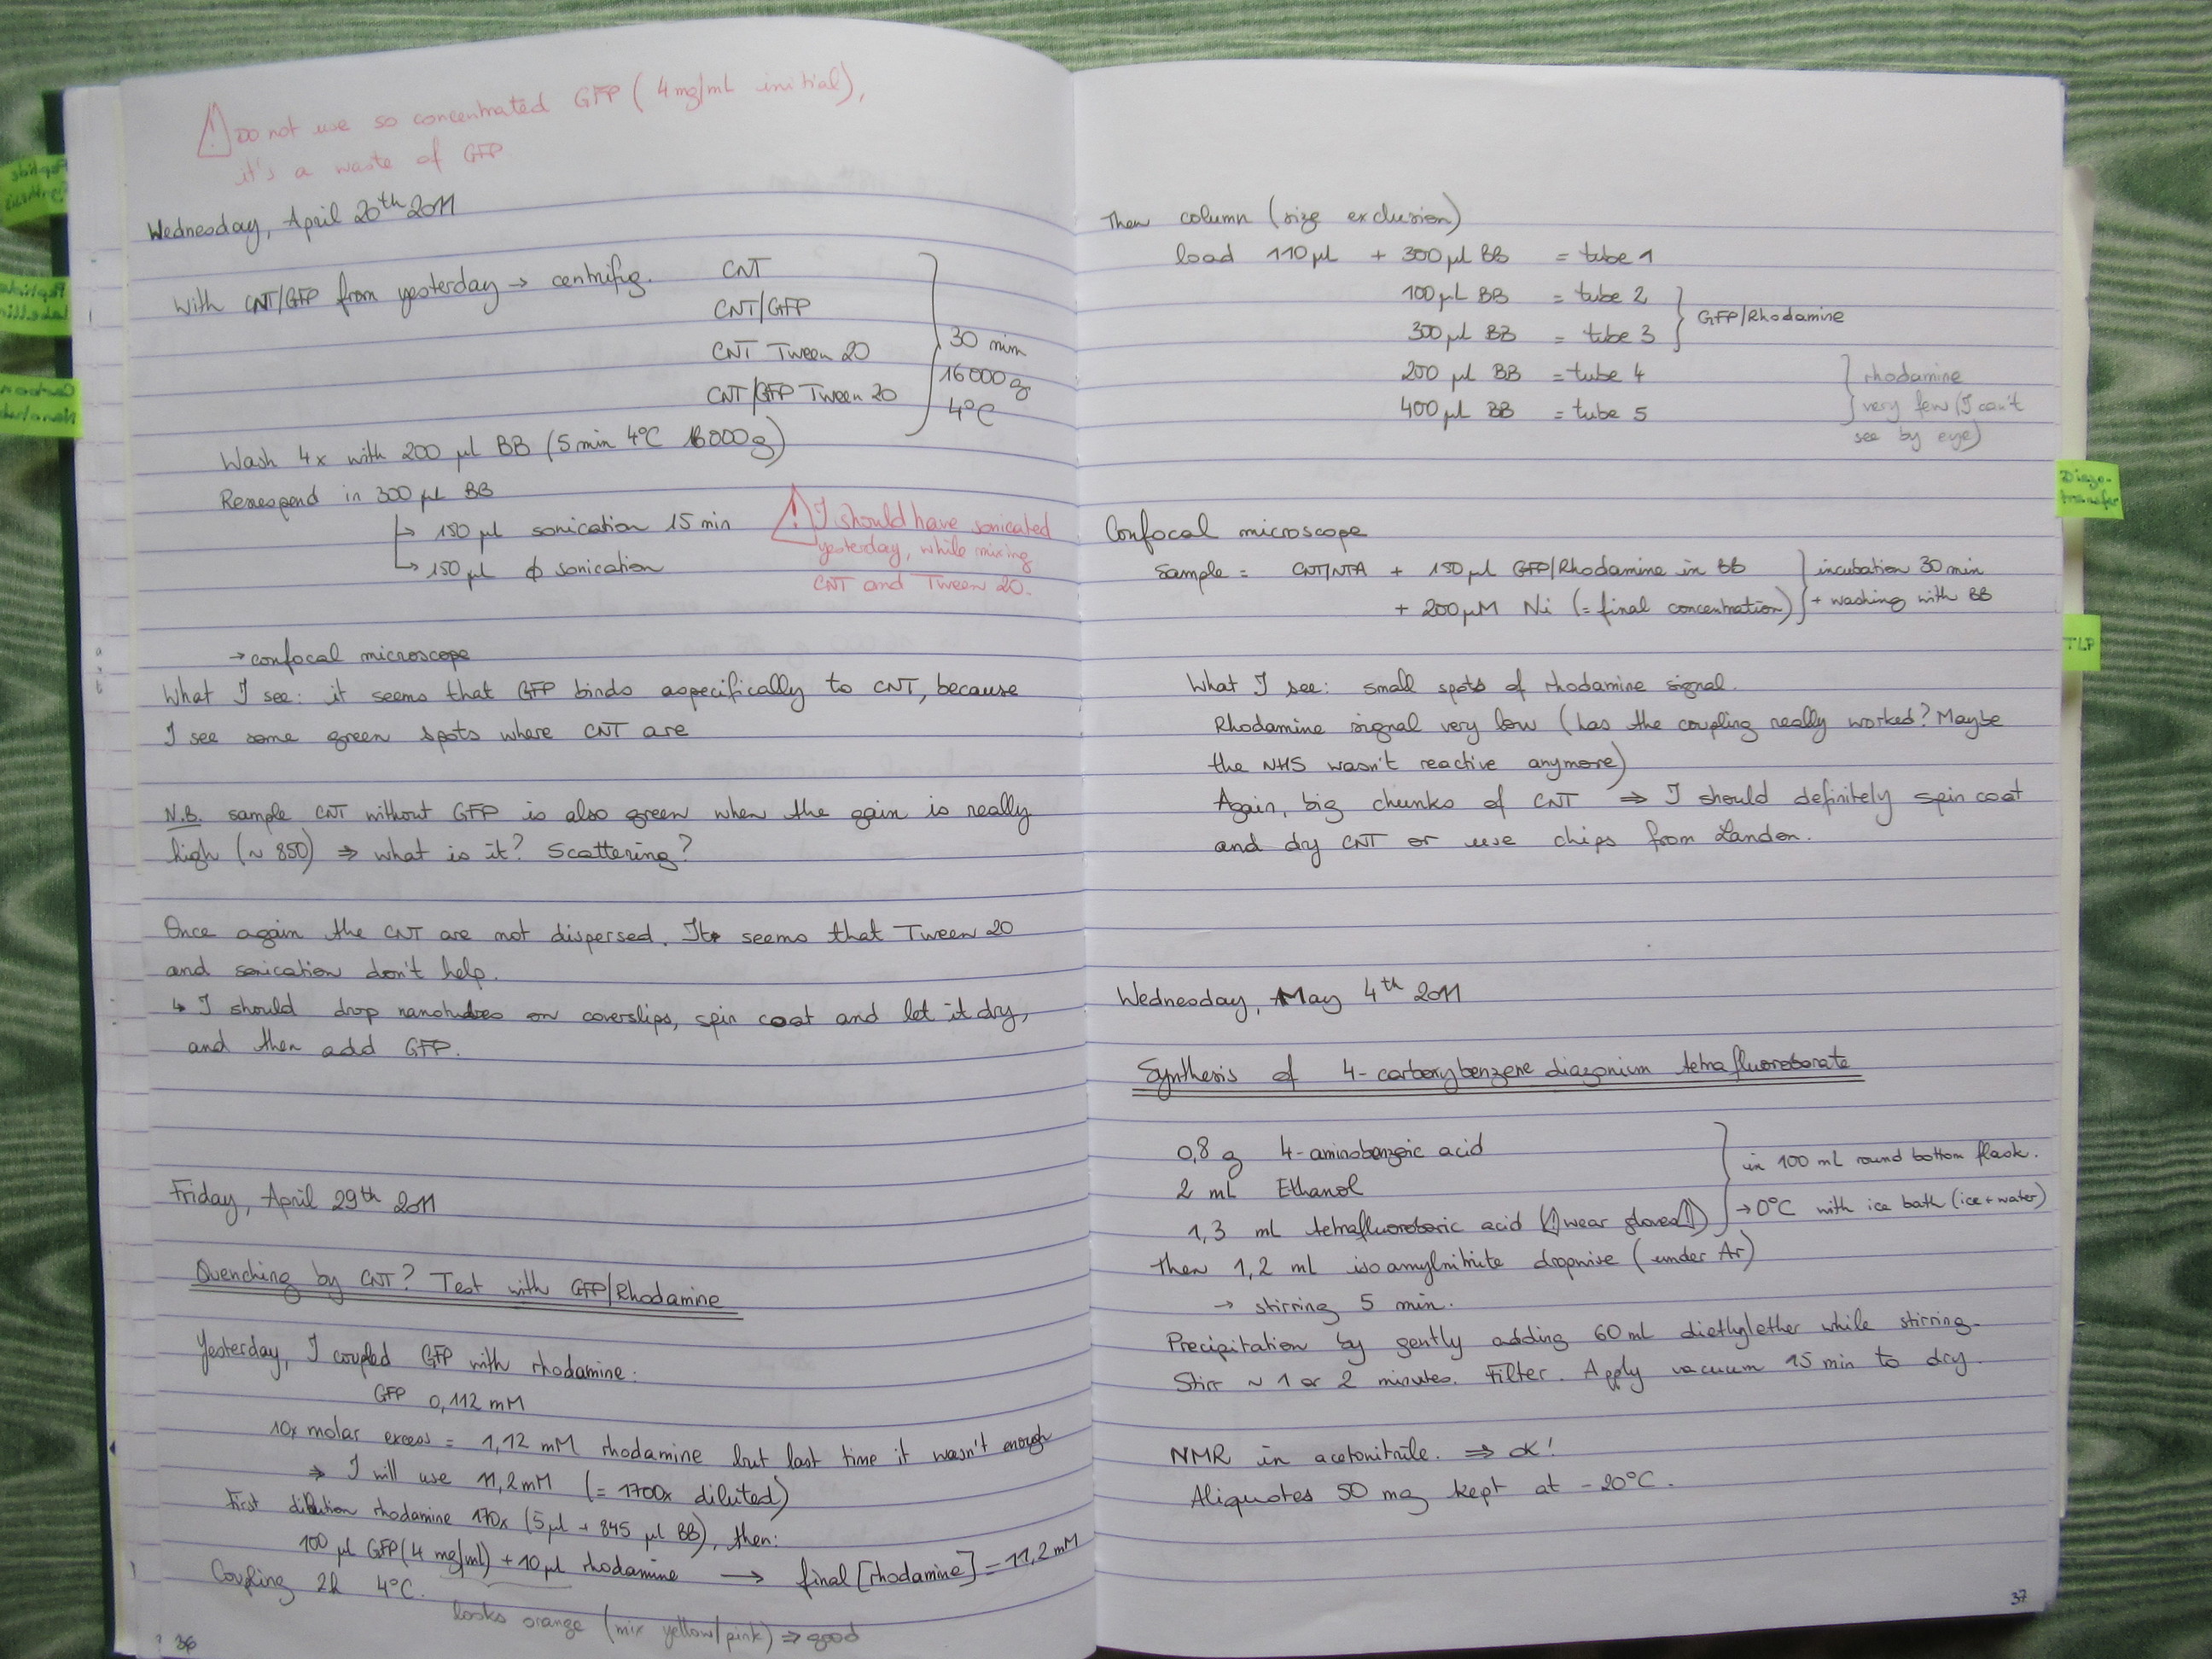 ⚠ Do not use so concentrated GFP (4mg/mL initial),
it's a waste of GFP
Wednesday, April 20th 2011
With CNT/GFP from yesterday → centrifug.
CNT
CNT/GFP
CNT Tween 20
CNT/GFP Tween 20
30 min
16000 g
4°C
Wash 4x with 200 µl BB (5min 4°C 16000g)
Resuspend in 300 µl BB
↳ 150 µl sonication 15 min
↳ 150 µl ϕ sonication
⚠ I should have sonicated
yesterday, while mixing
CNT and Tween 20.
→ confocal microscope
What I see: it seems that GFP binds aspecifically to CNT, because
I see some green spots where CNT are
N.B. sample CNT without GFP is also green when the gain is really
high (~ 850) ⇒ what is it? Scattering?
Once again the CNT are not dispersed. It seems that Tween 20
and sonication don't help.
↳ I should drop nanotubes on coverslips, spin coat and let it dry,
and then add GFP.
Friday, April 29th 2011
Quenching by CNT? Test with GFP/Rhodamine
Yesterday, I coupled GFP with rhodamine:
GFP 0,112 mM
10x molar excess = 1,12 mM rhodamine but last time it wasn't enough
⇒ I will use 11,2mM (= 1700x diluted)
First dilution rhodamine 170x (5µl + 845 µl BB), then:
100 µl GFP (4 mg/ml) + 10µl rhodamine → final [rhodamine] = 11,2 mM
Coupling 2h 4°C.
looks orange (mix yellow/pink) ⇒ good
36
Then column (size exclusion)
load 110µl + 300µl BB = tube 1
100µL BB = tube 2
300µl BB = tube 3
GFP/Rhodamine
200 µl BB = tube 4
400µl BB = tube 5
rhodamine
very few (I can't
see by eye)
Confocal microscope
Sample = CNT/NTA + 150µl GFP/Rhodamine in BB
+ 200µM Ni (= final concentration)
incubation 30 min
+ washing with BB
What I see: small spots of rhodamine signal.
Rhodamine signal very low (has the coupling really worked? Maybe
the NHS wasn't reactive anymore)
Again, big chunks of CNT ⇒ I should definitely spin coat
and dry CNT or use chips from Landon.
Wednesday, May 4th 2011
Synthesis of 4-carboxybenzene diazonium tetrafluoroborate
0,8 g 4-aminobenzoic acid
2 mL Ethanol
1,3 mL tetrafluoroboric acid (⚠wear gloves⚠)
in 100 mL round bottom flask.
→ 0°C with ice bath (ice + water)
then 1,2 ml isoamylnitrite dropwise (under Ar)
→ stirring 5 min.
Precipitation by gently adding 60ml diethylether while stirring.
Stir ~ 1 or 2 minutes. Filter. Apply vacuum 15 min to dry.
NMR in acetonitrile. ⇒ ok!
Aliquotes 50 mg kept at -20°C.
37
Diazo-
transfer
TLP